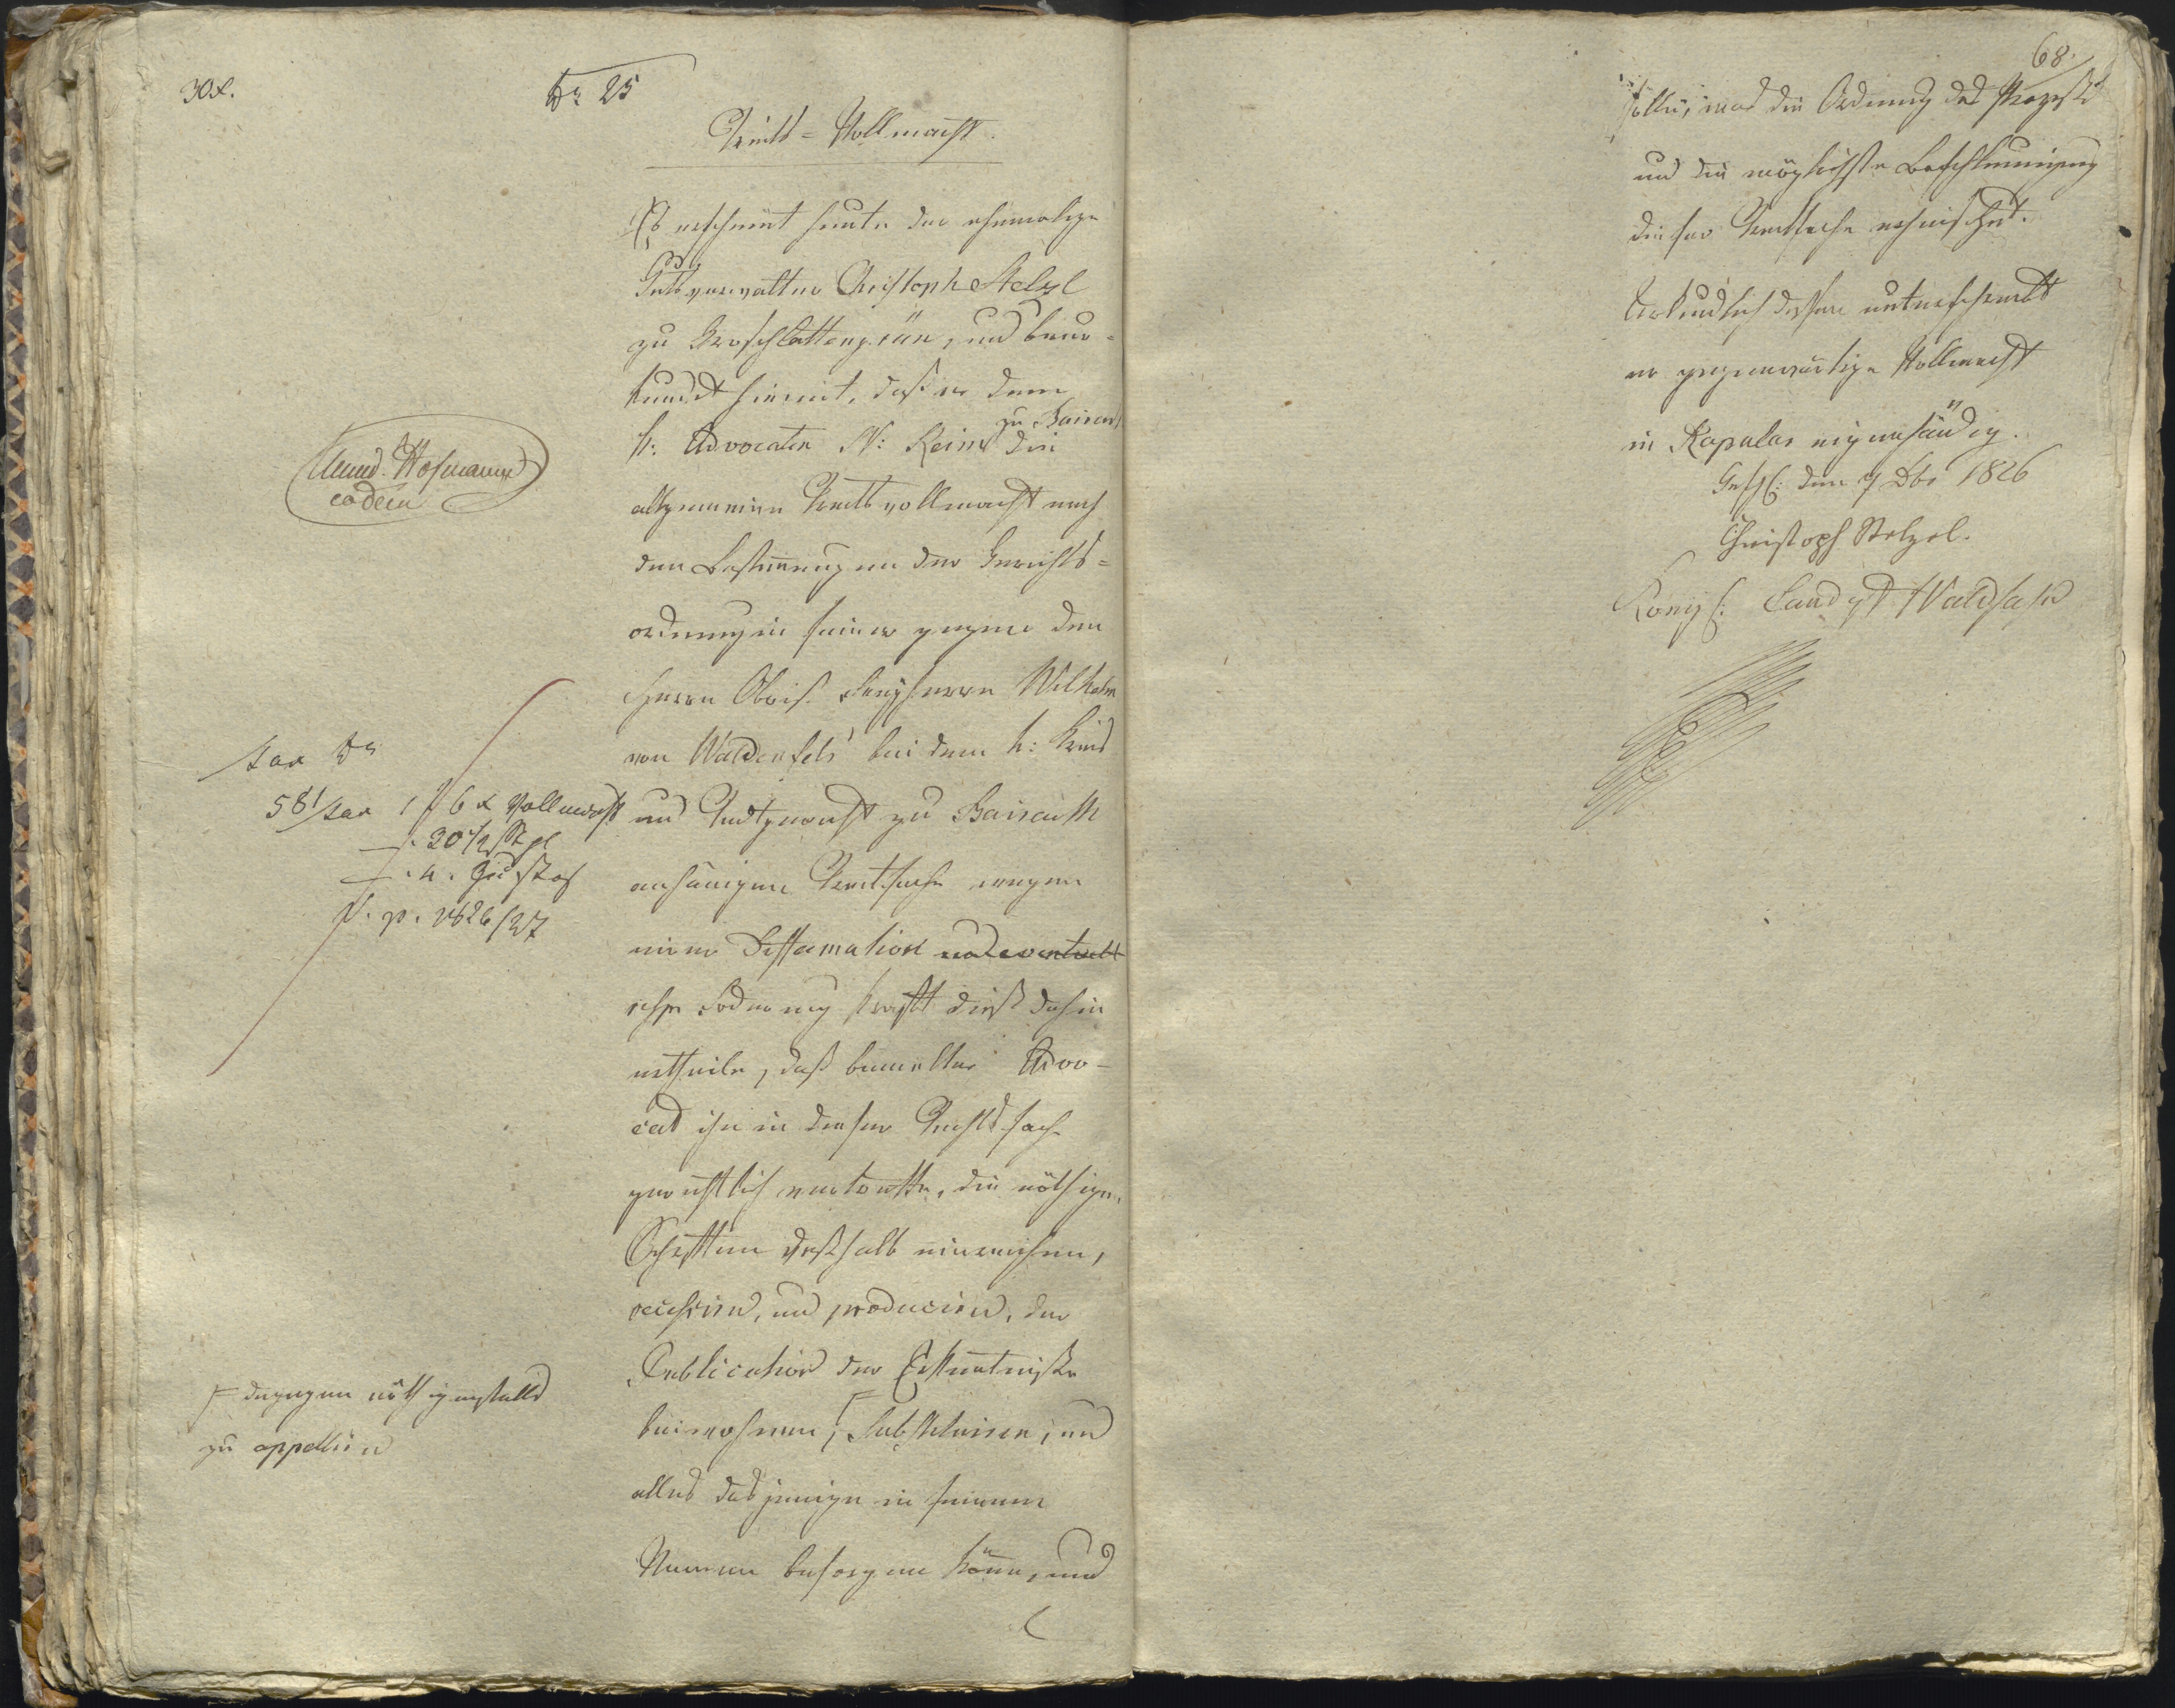 30x.
Nr 25
Streit=Vollmacht.
Es erscheint heute der ehemalige
Gutsverwalter Christoph Stelzl
zu Groschlattengrün, und beur=
kundet hiemit, daß er dem
k: Advocaten N: Keim zu Baireuth die
allgemeine Streitvollmacht nach
den Bestimungen der Gerichts=
ordnung in seiner gegen den
Herrn Obrist Freyherrn Wilhelm
von Waldenfels bei dem k: Kreis
und Stadtgericht zu Baireuth
anhängigen Streitsache wegen
einer Diffamation und eventuell
Foderung kraft dieß dahin
ertheile, daß bemelter Advo-
cat ihn in dieser Rechtssache
gerichtlich vertrette, die nöthigen
Schriften deßhalb einreichen,
recessiren, und produciren, der
Publication der Erkenntniße
beiwohnen, F substituiren, und
alles dasjenige in seinem
Namen besorgen könne, und
Hofmann
eodem
Tax Nr
581/Tax 1 f 6 x Vollmacht
20 1/2 Stpl
4. Zustell
p. 1826/27
F dagegen nöthigenfalls
zu appelliren
68.
solle, was die Ordnung des Prozeßes
und die möglichste Beschleunigung
dieser Streitsache erheischet.
Urkundlich dessen unterschreibt
er gegenwärtige Vollmacht
in Kapular eigenhändig.
Geschl: den 9 Dbr 1826
Christoph Stelzel.
Königl: Landgt Waldsaßen